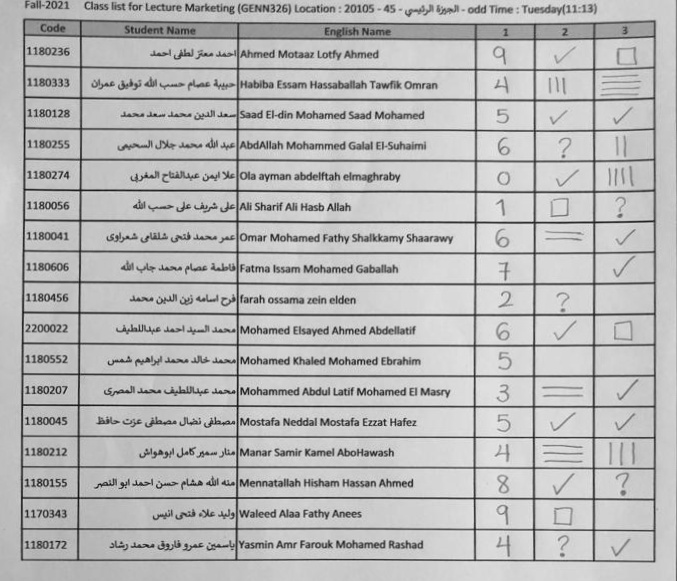 Fall-2021 Class list for Lecture Marketing (GENN326) Location : 20105 - 45 - الجيزة الرئيسي - odd Time : Tuesday(11:13)
Code Student Name English Name 1 2 3
1180236 احمد معتز لطفى احمد Ahmed Motaaz Lotfy Ahmed 9 ✓ □
1180333 حبيبة عصام حسب الله توفيق عمران Habiba Essam Hassaballah Tawfik Omran 4 |||
1180128 سعد الدين محمد سعد محمد Saad El-din Mohamed Saad Mohamed 5 ✓ ✓
1180255 عبد الله محمد جلال السحيمى AbdAllah Mohammed Galal El-Suhaimi 6 ? ||
1180274 علا ايمن عبدالفتاح المغربى Ola ayman abdelftah elmaghraby 0 ✓ ||||
1180056 على شريف على حسب الله Ali Sharif Ali Hasb Allah 1 □ ?
1180041 عمر محمد فتحى شلقامى شعراوى Omar Mohamed Fathy Shalkkamy Shaarawy 6 = ✓
1180606 فاطمة عصام محمد جاب الله Fatma Issam Mohamed Gaballah 7 ✓
1180456 فرح اسامه زين الدين محمد farah ossama zein elden 2 ?
2200022 محمد السيد احمد عبداللطيف Mohamed Elsayed Ahmed Abdellatif 6 ✓ □
1180552 محمد خالد محمد ابراهيم شمس Mohamed Khaled Mohamed Ebrahim 5
1180207 محمد عبداللطيف محمد المصرى Mohammed Abdul Latif Mohamed El Masry 3 = ✓
1180045 مصطفى نضال مصطفى عزت حافظ Mostafa Neddal Mostafa Ezzat Hafez 5 ✓ ✓
1180212 منار سمير كامل ابوهواش Manar Samir Kamel AboHawash 4 ≡ |||
1180155 منه الله هشام حسن احمد ابو النصر Mennatallah Hisham Hassan Ahmed 8 ✓ ?
1170343 وليد علاء فتحى انيس Waleed Alaa Fathy Anees 9 □
1180172 ياسمين عمرو فاروق محمد رشاد Yasmin Amr Farouk Mohamed Rashad 4 ? ✓